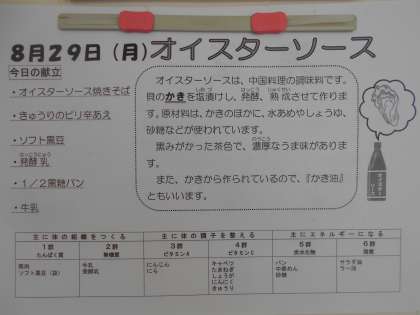 8月29日(月)オイスターソース
今日の献立
・オイスターソース焼きそば
・きゅうりのピリ辛あえ
・ソフト黒豆
はっこうにゅう
・発酵乳
・1/2黒糖パン
・牛乳
オイスターソースは、中国料理の調味料です。
貝のかきを塩漬けし、発酵、熟成させて作りま
す。原材料は、かきのほかに、水あめやしょうゆ、
砂糖などが使われています。
黒みがかった茶色で、濃厚なうまい味がありま
す。
また、かきから作られているので、『かき油』
ともいいます。
オイスターソース
主に体の組織をつくる 主に体の調子を整える 主にエネルギーになる
1群 2群 3群 4群 5群 6群
たんぱく質 無機質 ビタミンA ビタミンC 炭水化物 脂質
豚肉 牛乳 にんじん キャベツ パン サラダ油
ソフト黒豆(袋) 発酵乳 にら たまねぎ 中華めん ラー油
しょうが 砂糖
にんにく
きゅうり